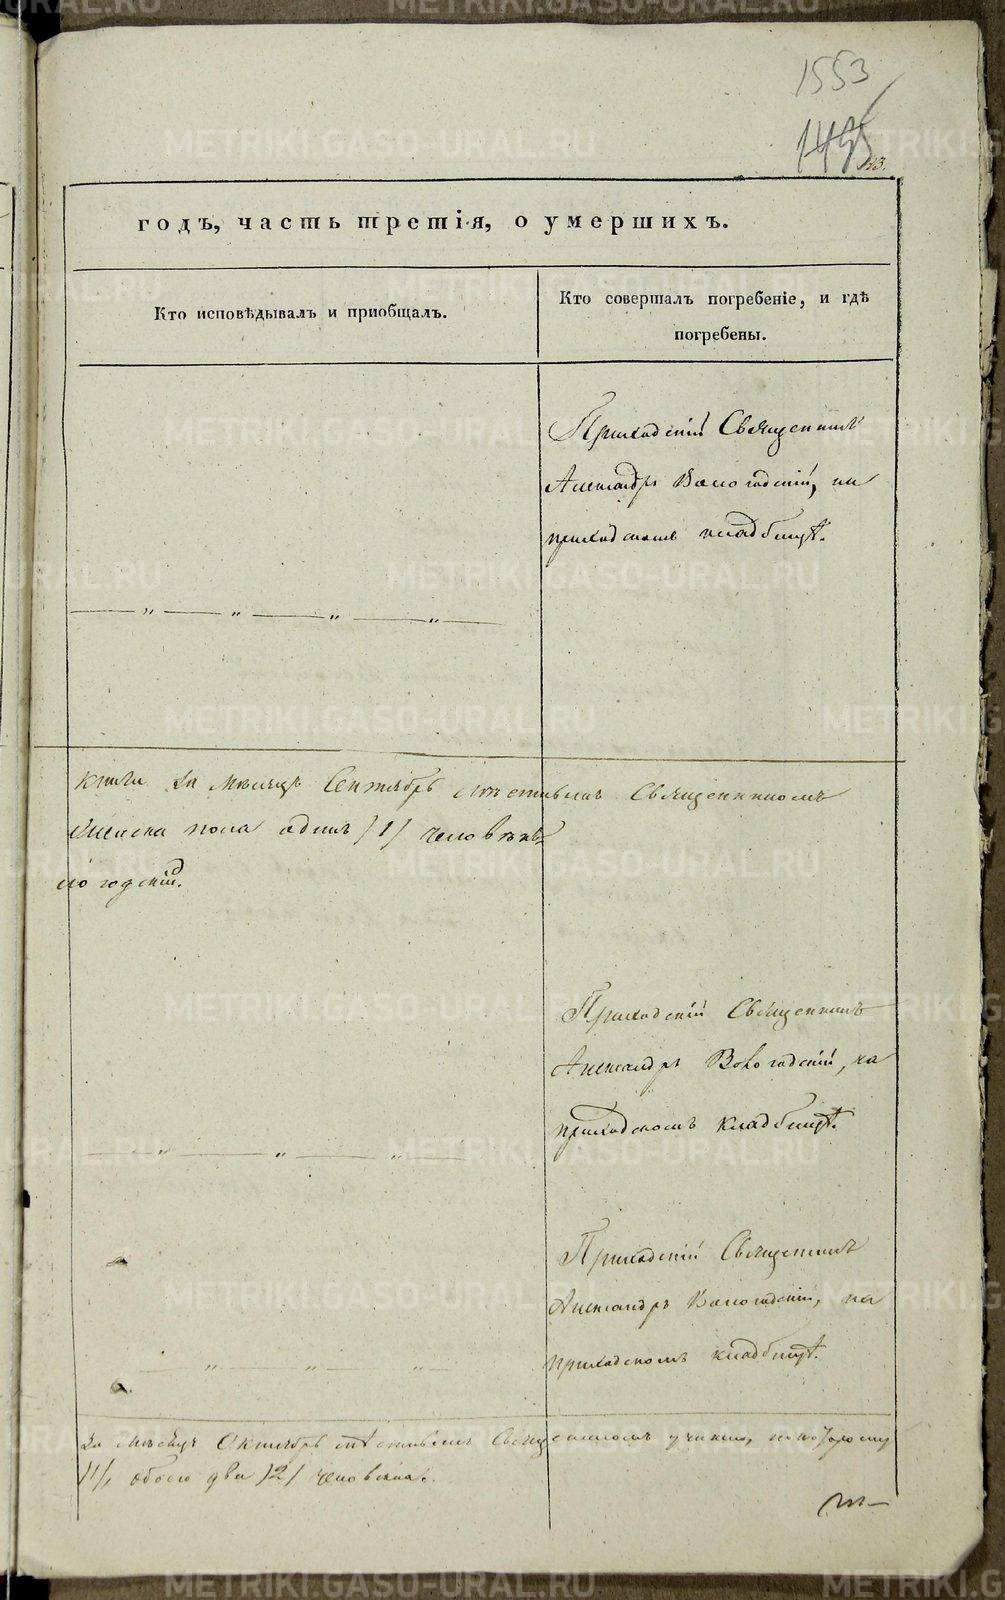 1553
1495
годъ, часть третія, о умершихъ.
Кто исповѣдывалъ и приобщалъ.
Кто совершалъ погребеніе, и гдѣ
погребены.
Приходскій Священникъ
Александръ Вологодскій, на
приходскомъ кладбищѣ.
книги за мѣсяцъ Сентябрь мѣстнымъ Священникомъ
женска пола одинъ /1/ человѣкъ
логодскій.
Приходскій Священникъ
Александръ Вологодскій, на
приходскомъ кладбищѣ.
Приходскій Священникъ
Александръ Вологодскій, на
приходскомъ кладбищѣ.
За мѣсяцъ Октябрь мѣстнымъ Священникомъ по которому
/1/, обоего два /2/ человѣка.
METRIKI.GASO-URAL.RU